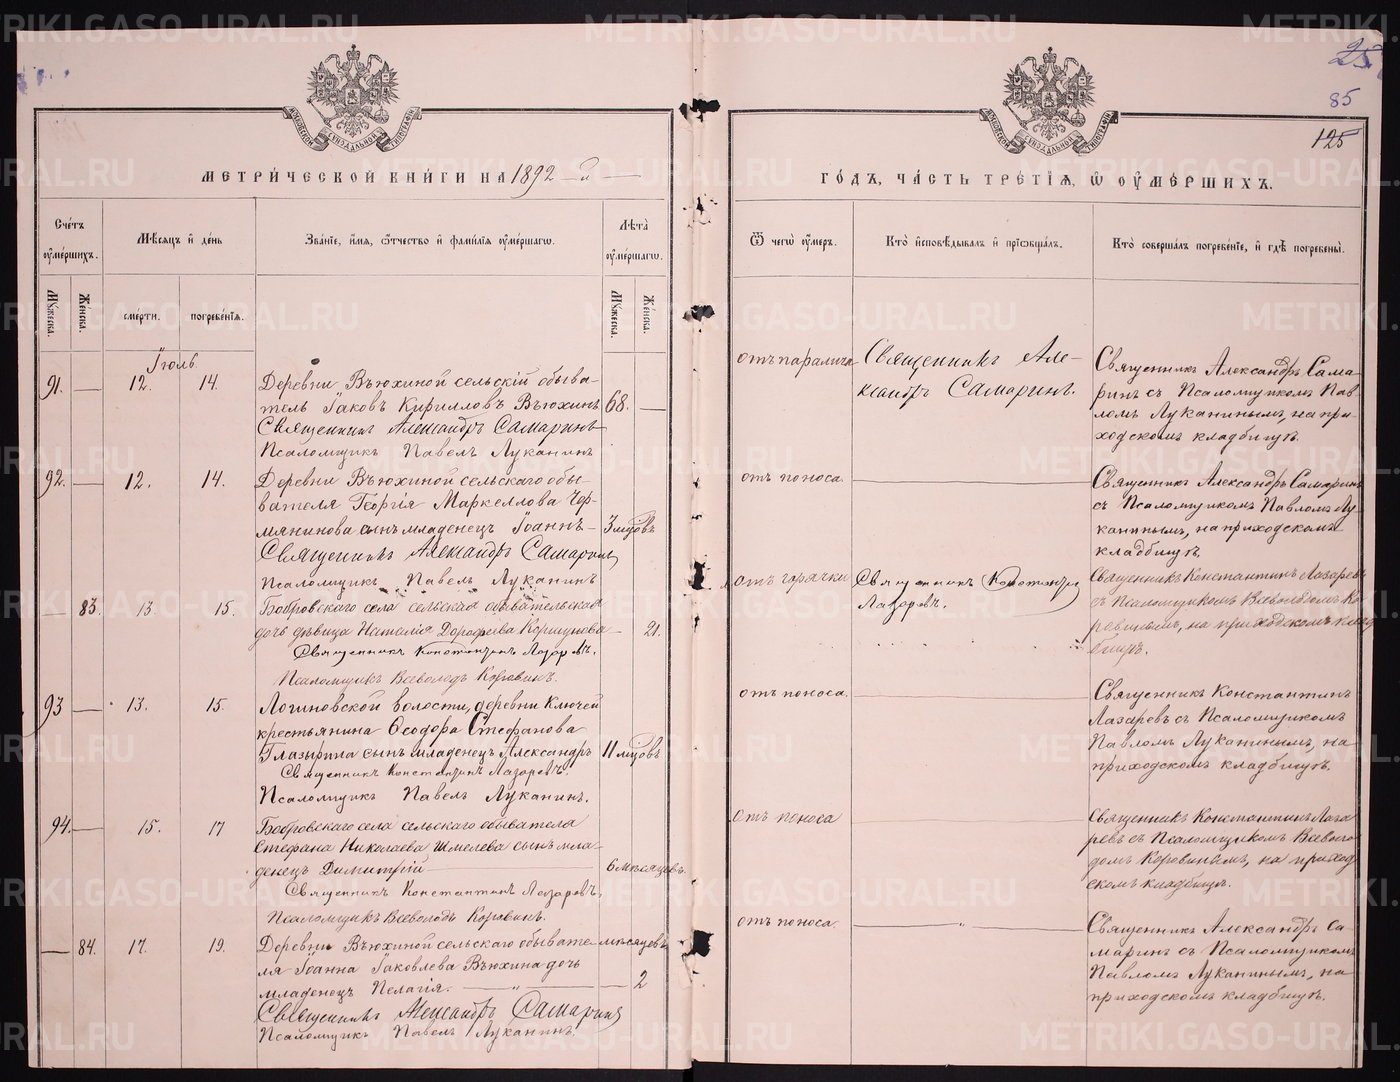 25
85
125
МОСКОВСКОЙ СѴНОДАЛЬНОЙ ТИПОГРАФІИ
МОСКОВСКОЙ СѴНОДАЛЬНОЙ ТИПОГРАФІИ
МЕТРИ́ЧЕСКОЙ КНИ́ГИ НА 1892-й
ГО́ДЪ, ЧА́СТЬ ТРЕ́ТІѦ, Ѽ ОУ҆МЕ́РШИХЪ.
Сче́тъ оу҆ме́ршихъ.
Мѣ́сѧцъ и҆ де́нь
Зва́нїе, и҆́мѧ, ѻ҆́тчество и҆ фами́лїѧ оу҆ме́ршагѡ.
Лѣ́та оу҆ме́ршагѡ.
Ѿ чегѡ̀ оу҆́меръ.
Кто̀ и҆сповѣ́дывалъ и҆ прїѡбща́лъ.
Кто̀ соверша́лъ погребе́нїе, и҆ гдѣ̀ погребены̀.
Мꙋ́жеска.
Же́нска.
сме́рти.
погребе́нїѧ.
Мꙋ́жеска.
Же́нска.
Іюль
91. — 12. 14.
Деревни Вьюхиной сельскій обыва-
тель Іаковъ Кирилловъ Вьюхинъ 68. —
Священникъ Александръ Самаринъ
Псаломщикъ Павелъ Луканинъ
отъ паралича
Священникъ Але-
ксандръ Самаринъ.
Священникъ Александръ Сама-
ринъ съ Псаломщикомъ Пав-
ломъ Луканинымъ, на при-
ходскомъ кладбищѣ.
92. — 12. 14.
Деревни Вьюхиной сельскаго обы-
вателя Георгія Маркеллова Чер-
мянинова сынъ младенецъ Іоаннъ — 3 мцовъ
Священникъ Александръ Самаринъ
Псаломщикъ Павелъ Луканинъ
отъ поноса.
Священникъ Александръ Самаринъ
съ Псаломщикомъ Павломъ Лу-
канинымъ, на приходскомъ
кладбищѣ.
— 83. 13. 15.
Бобровскаго села сельская обывательская
дочь дѣвица Наталія Дорофеева Коршунова — 21.
Священникъ Константинъ Лазаревъ.
Псаломщикъ Всеволодъ Коровинъ.
отъ горячки
Священникъ Константинъ
Лазаревъ.
Священникъ Константинъ Лазаревъ
съ Псаломщикомъ Всеволодомъ Ко-
ровинымъ, на приходскомъ клад-
бищѣ.
93 — 13. 15.
Логиновской волости, деревни Ключей
крестьянина Ѳеодора Стефанова
Глазырина сынъ младенецъ Александръ 11 мцовъ
Священникъ Константинъ Лазаревъ.
Псаломщикъ Павелъ Луканинъ.
отъ поноса.
Священникъ Константинъ
Лазаревъ съ Псаломщикомъ
Павломъ Луканинымъ, на
приходскомъ кладбищѣ.
94. — 15. 17
Бобровскаго села сельскаго обывателя
Стефана Николаева Шмелева сынъ мла-
денецъ Димитрій — 6 мѣсяцевъ.
Священникъ Константинъ Лазаревъ,
Псаломщикъ Всеволодъ Коровинъ.
отъ поноса
Священникъ Константинъ Лаза-
ревъ съ Псаломщикомъ Всеволо-
домъ Коровинымъ, на приход-
скомъ кладбищѣ.
— 84. 17. 19.
Деревни Вьюхиной сельскаго обывате- мѣсяцевъ
ля Іоанна Іаковлева Вьюхина дочь
младенецъ Пелагія. — „ — 2
Священникъ Александръ Самаринъ
Псаломщикъ Павелъ Луканинъ.
отъ поноса.
Священникъ Александръ Са-
маринъ съ Псаломщикомъ
Павломъ Луканинымъ, на
приходскомъ кладбищѣ.
METRIKI.GASO-URAL.RU